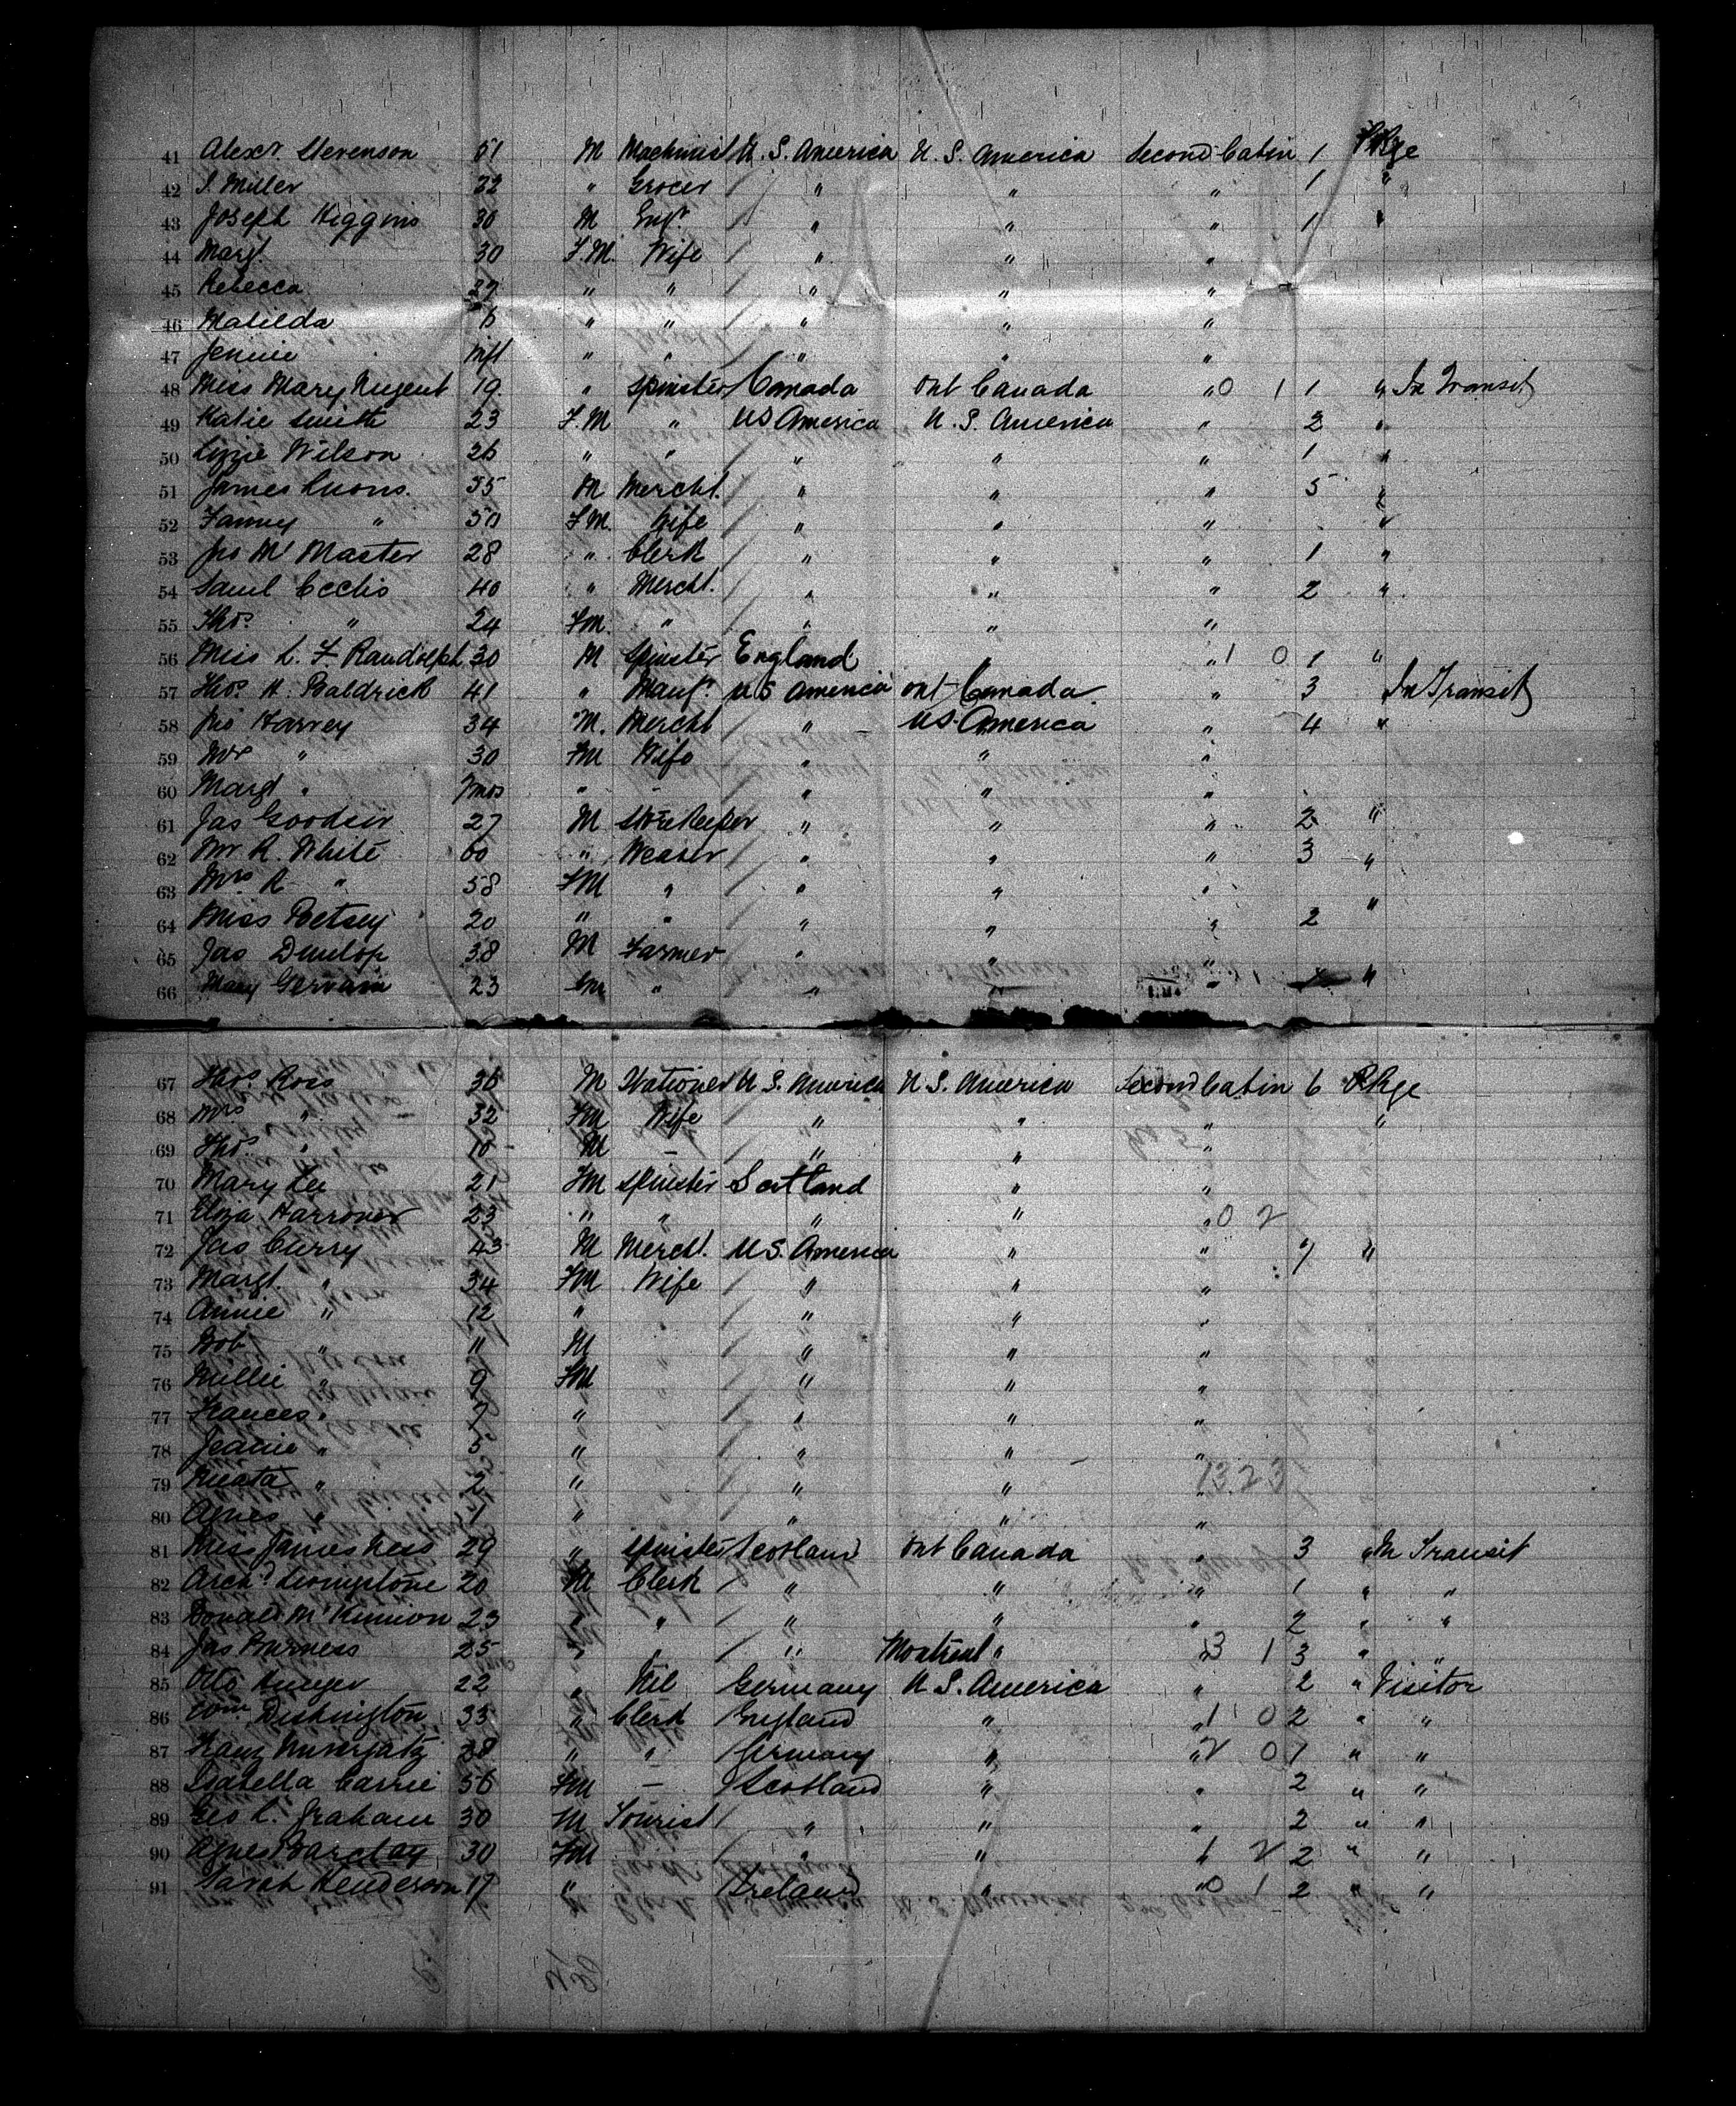 41 Alexr. Stevenson 51 M Machinist U.S. America U.S. America Second Cabin 1 Pkge
42 S. Miller 32 " Grocer " " " 1 "
43 Joseph Higgins 30 M Engr. " " " 1 "
44 Margt. 30 F.M. Wife " " "
45 Rebecca 27 " " " " "
46 Matilda 6 " " " " "
47 Jennie Inft " " " " "
48 Miss Mary Nugent 19 " Spinster Canada Ont Canada " 0 1 1 " In Transit
49 Katie Smith 23 F.M " US America U.S. America " 2 "
50 Lizzie Wilson 26 " " " " " 1 "
51 James Lyons. 55 M Mercht. " " " 5 "
52 Fanny " 50 F.M. Wife " " " "
53 Jno Mc Master 28 " Clerk " " " 1 "
54 Saml 40 " Mercht. " " " 2 "
55 Thos. " 24 F.M. " " " "
56 Miss L. F. Randolph 30 M Spinster England " " 1 0 1 "
57 Thos. H. Baldrick 41 " Manfr. US America Ont Canada " 3 In Transit
58 Jno Harvey 34 M. Mercht " US. America " 4 "
59 " 30 FM Wife " " "
60 Margt " 7mos " " " "
61 Jas Goodsir 27 M Storekeeper " " " 2 "
62 Mr R. White 60 " Weaver " " " 3 "
63 Mrs R " 58 FM " " " "
64 Miss Betsey 20 " " " " " 2 "
65 Jas Dunlop 38 M Farmer " " "
66 Mary Gervain 23 " " " " 1 "
67 Thos. Ross 36 M Stationer U.S. America U.S. America Second Cabin 6 Pkge
68 Mrs " 32 FM Wife " " " "
69 Thos. " 10 M – " " "
70 Mary Lee 21 FM Spinster Scotland " "
71 Eliza Harrower 23 " " " " " 0 2
72 Jas Curry 43 M Mercht. US. America " " 7 "
73 Margt. " 34 FM Wife " " "
74 Annie " 12 " " " "
75 Bob " 11 M " " "
76 Millie " 9 FM " " "
77 Frances " 7 " " " "
78 Jeanie " 5 " " " "
79 " 2 " " " " 1323
80 Agnes " 1 " " " "
81 Miss James Ness 29 " Spinster Scotland Ont Canada " 3 " In Transit
82 Archd. Livingstone 20 M Clerk " " " 1 " "
83 Donald McKinnon 23 " " " " " 2 " "
84 Jas Burness 25 " " " Montreal " 3 1 3 " "
85 Otto Kruger 22 " Nil Germany U.S. America " 2 " Visitor
86 Wm Diskington 35 " Clerk England " " 1 0 2 " "
87 28 " " Germany " " 2 0 1 " "
88 Isabella Carrie 56 FM – Scotland " " 2 " "
89 Geo L. Graham 30 M Tourist " " " 2 " "
90 Agnes Barclay 30 FM " " 1 2 2 " "
91 Sarah Henderson 19 " Ireland " " 0 1 2 " "